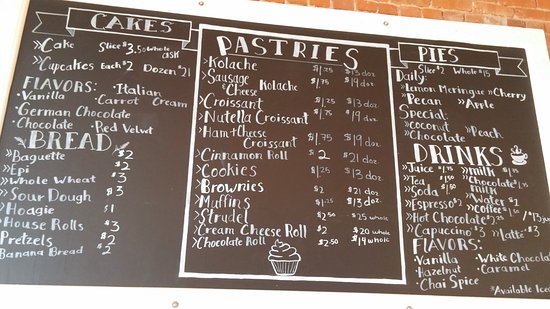 CAKES
»Cake Slice $3.50 whole ask
»Cupcakes Each $2 Dozen $21
FLAVORS: ·Italian
·Vanilla ·Carrot Cream
·German Chocolate
·Chocolate ·Red Velvet
BREAD
»Baguette $2
»Epi $2
»Whole Wheat $3
»Sour Dough $3
»Hoagie $1
»House Rolls $3
Pretzels $2
Banana Bread $2
PASTRIES
»Kolache $1.25 $13 doz
»Sausage & Cheese Kolache $1.75 $19 doz
»Croissant $1.25 $13 doz
»Nutella Croissant $1.75 $19 doz
»Ham+Cheese
Croissant $1.75 $19 doz
»Cinnamon Roll $2 $21 doz
»Cookies $1.25 $13 doz
»Brownies $2 $21 doz
»Muffins $1.25 $13 doz
»Strudel $2 $25 whole
»Cream Cheese Roll $2 $20 whole
»Chocolate Roll $2.50 $19 whole
PIES
Slice $2 Whole $15
Daily:
»Lemon Meringue »Cherry
»Pecan »Apple
Special:
»coconut »Peach
»Chocolate
DRINKS
»Juice »Milk
»Tea »Chocolate milk
»Soda »Water
»Espresso »Coffee
»Hot Chocolate
»Cappucino $3 »Latté $3
FLAVORS:
·Vanilla ·White Chocolate
·Hazelnut ·Caramel
·Chai Spice
*Available Iced